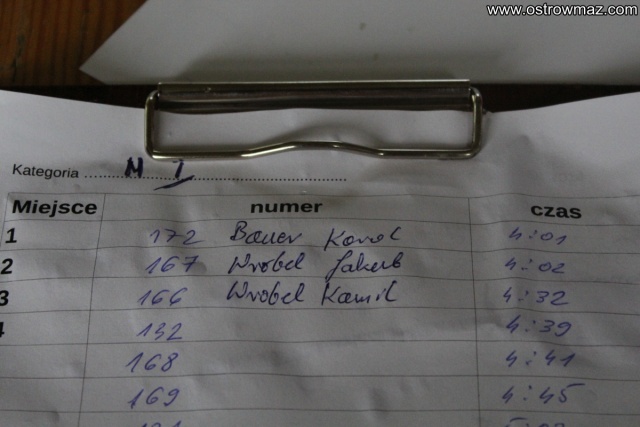 www.ostrowmaz.com
Kategoria M I
Miejsce numer czas
1 172 Bauer Karol 4:01
2 167 Wróbel Jakub 4:02
3 166 Wróbel Kamil 4:32
4 132 4:39
168 4:41
169 4:45